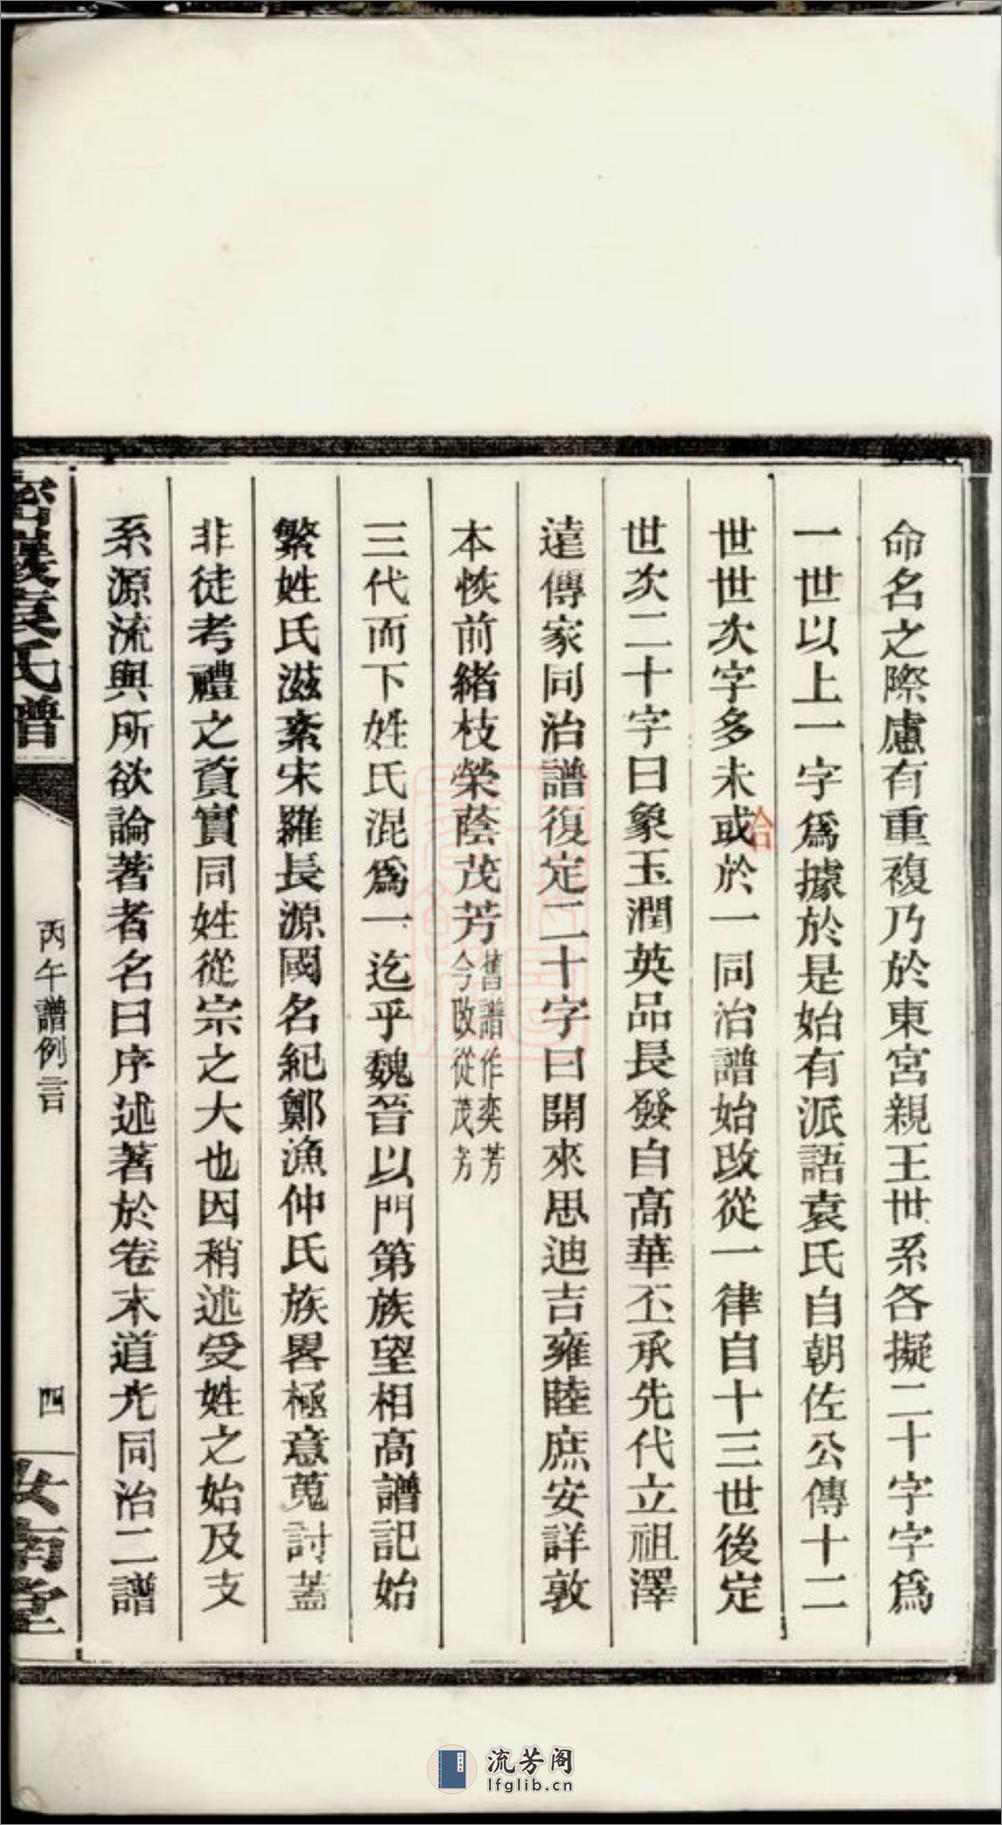 命名之際慮有重複乃於東宮親王世系各擬二十字字爲
一世以上一字爲據於是始有派語袁氏自朝佐公傳十二
世世次字多未或於一同治譜始改從一律自十三世後定
合
世次二十字曰象玉潤英品長發自高華丕承先代立祖澤
遠傳家同治譜復定二十字曰開來思迪吉雍睦庶安詳敦
本恢前緒枝榮蔭茂芳舊譜作奕芳今改從茂芳
三代而下姓氏混爲一迄乎魏晉以門第族望相高譜記始
繁姓氏滋紊宋羅長源國名紀鄭漁仲氏族畧極意蒐討蓋
非徒考禮之資實同姓從宗之大也因稍述受姓之始及支
系源流與所欲論著者名曰序述著於卷末道光同治二譜
袁氏譜
丙午譜例言
四
汝南堂
流芳阁
lfglib.cn